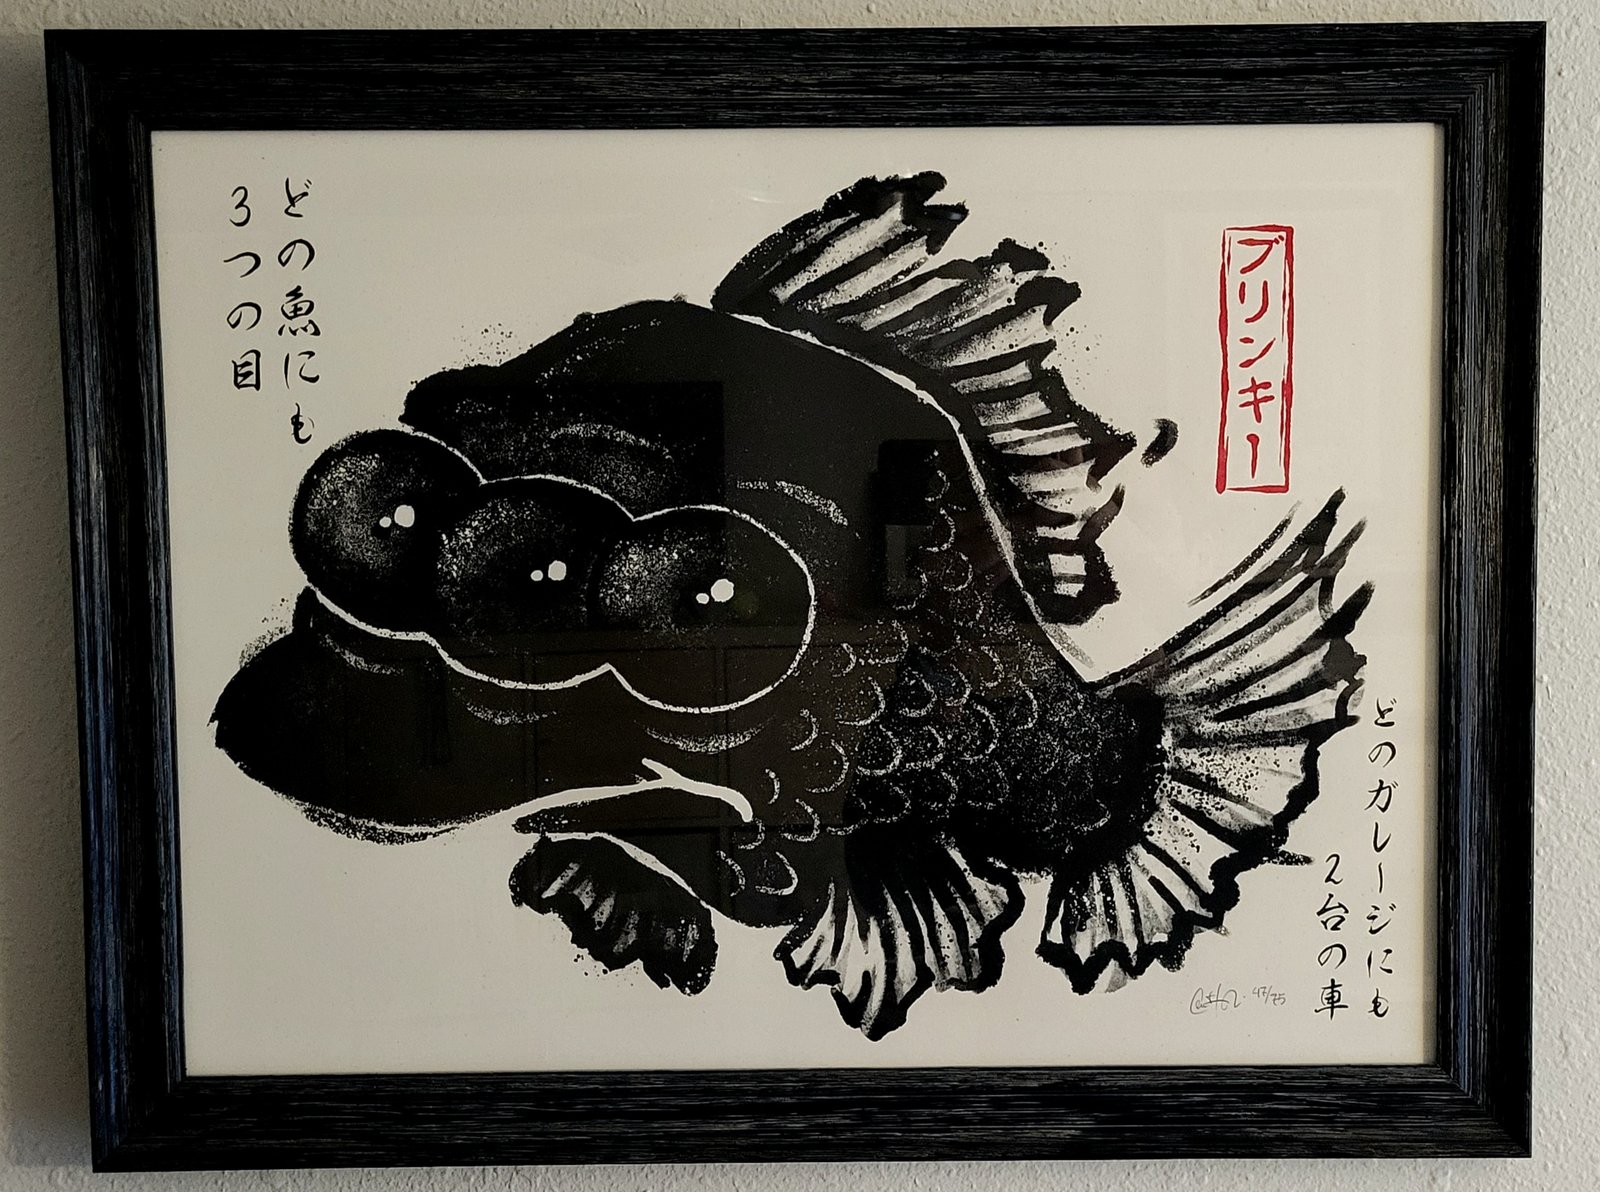 どの魚にも
3つの目
ブリンキー
どのガレージにも
2台の車
47/75